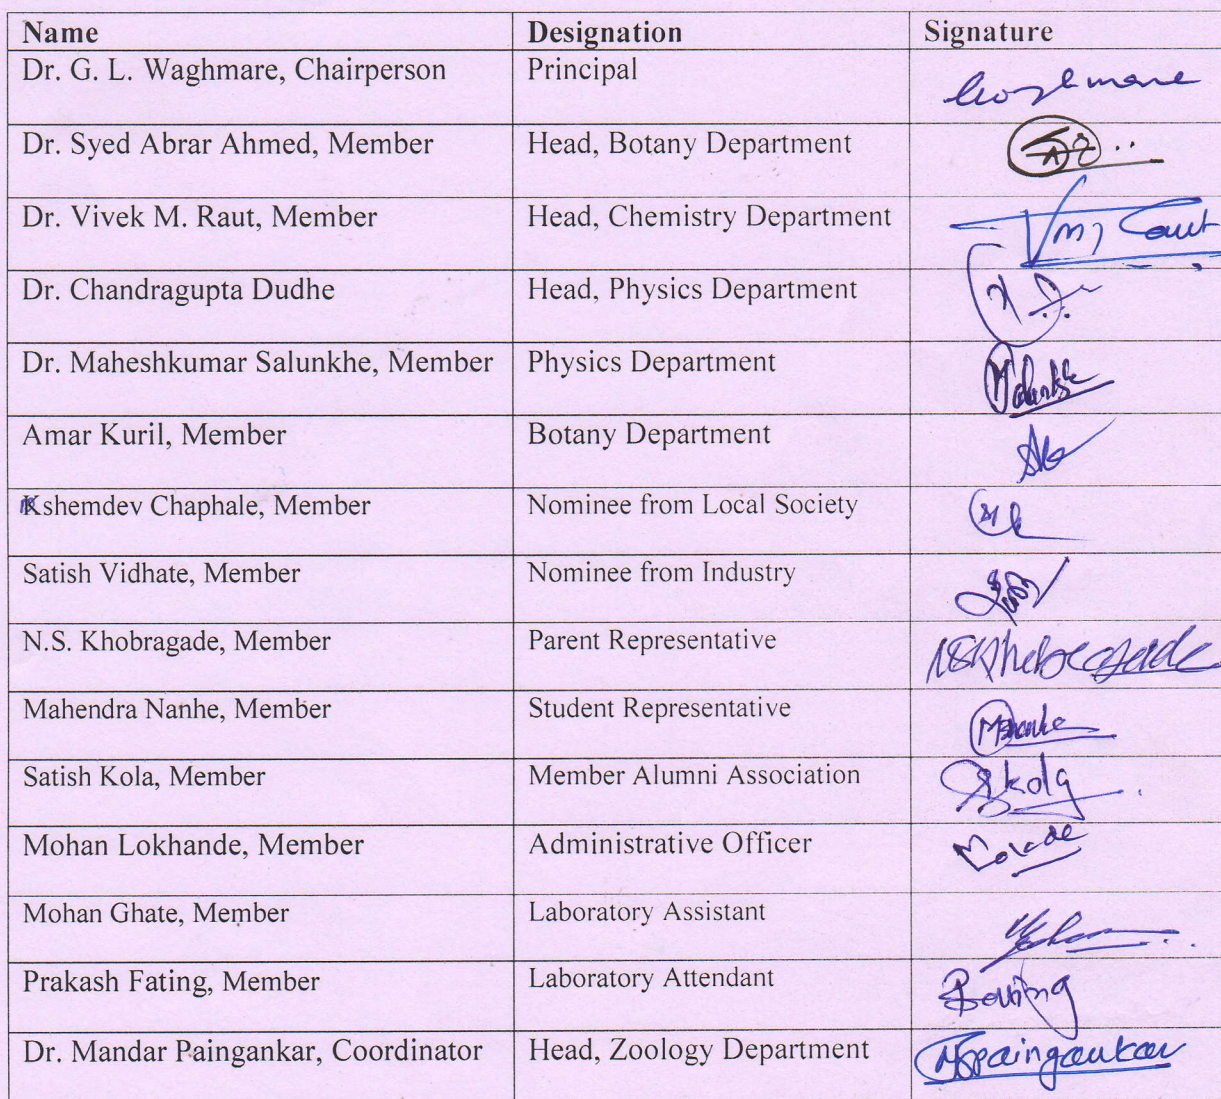 Name Designation Signature
Dr. G. L. Waghmare, Chairperson Principal
Dr. Syed Abrar Ahmed, Member Head, Botany Department
Dr. Vivek M. Raut, Member Head, Chemistry Department
Dr. Chandragupta Dudhe Head, Physics Department
Dr. Maheshkumar Salunkhe, Member Physics Department
Amar Kuril, Member Botany Department
Kshemdev Chaphale, Member Nominee from Local Society
Satish Vidhate, Member Nominee from Industry
N.S. Khobragade, Member Parent Representative
Mahendra Nanhe, Member Student Representative
Satish Kola, Member Member Alumni Association
Mohan Lokhande, Member Administrative Officer
Mohan Ghate, Member Laboratory Assistant
Prakash Fating, Member Laboratory Attendant
Dr. Mandar Paingankar, Coordinator Head, Zoology Department